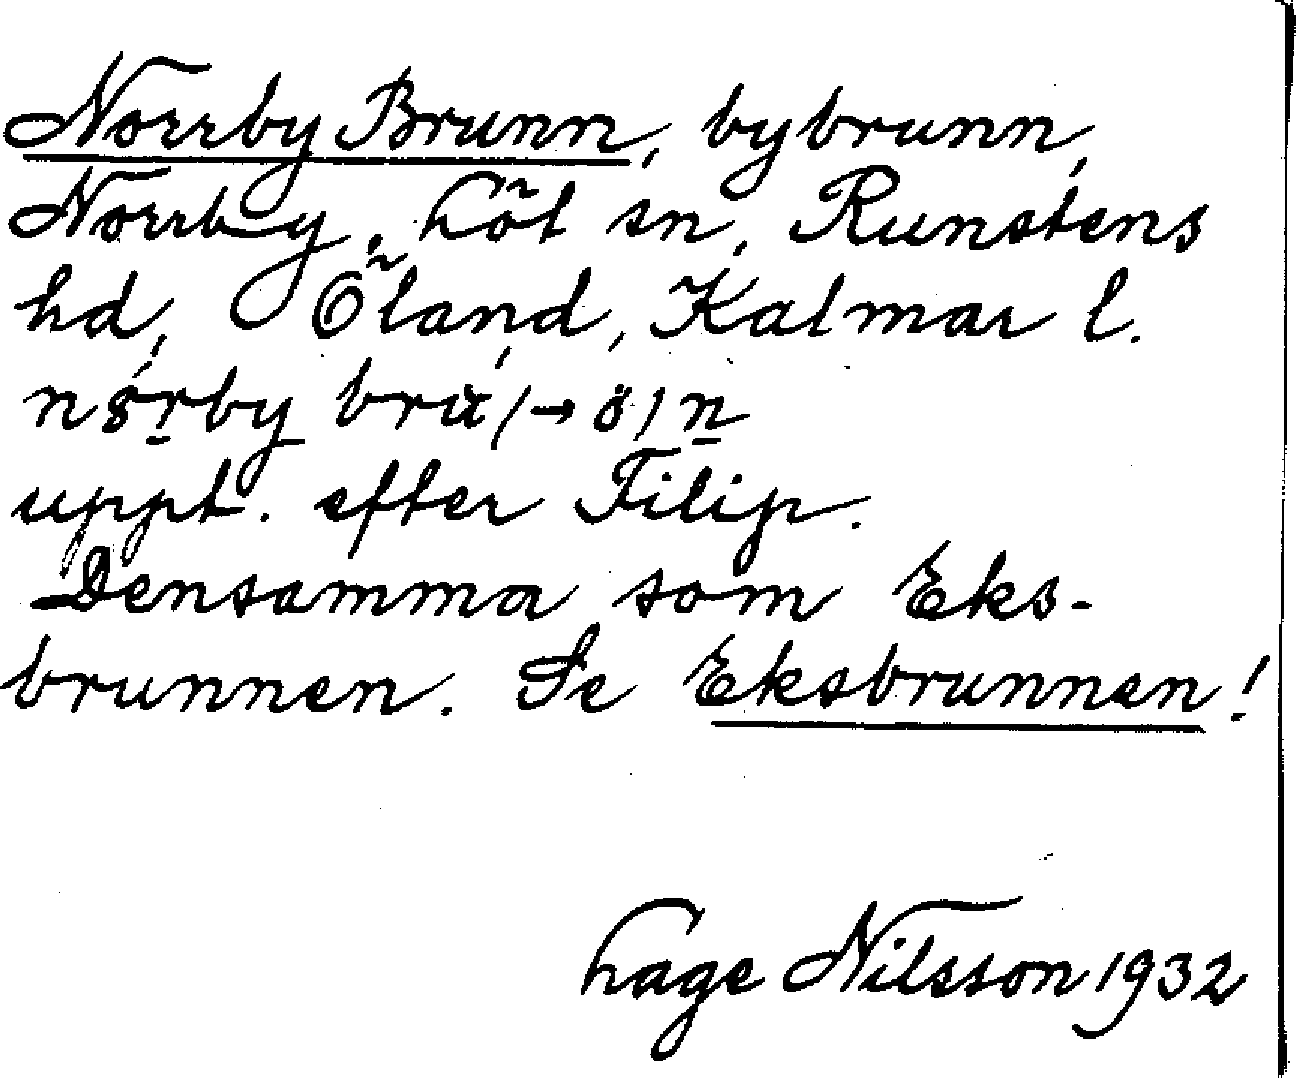 Norrby Brunn, bybrunn,
Norrby, Löt sn, Runstens
hd, Öland, Kalmar l.
uppt. efter Filip.
Densamma som Eks-
brunnen. Se Eksbrunnen!
Lage Nilsson 1932